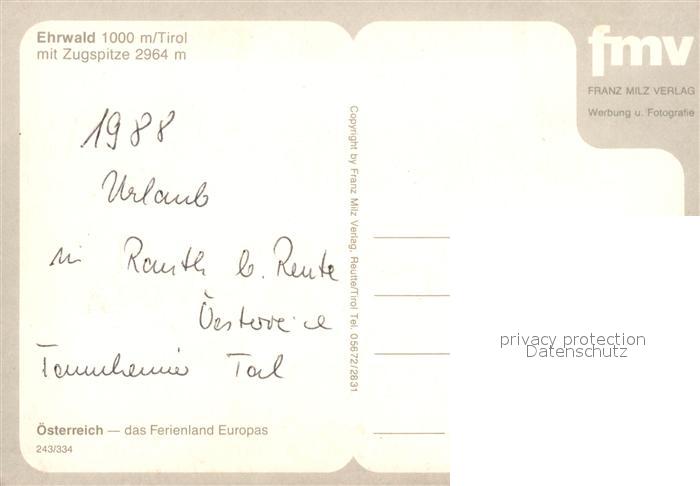 Ehrwald 1000 m/Tirol
mit Zugspitze 2964 m
1988
Urlaub
in Rauth b. Reute
Österreich
Tannheimer Tal
Österreich — das Ferienland Europas
243/334
Copyright by Franz Milz Verlag, Reutte/Tirol Tel. 05672/2831
fmv
FRANZ MILZ VERLAG
Werbung u. Fotografie
privacy protection
Datenschutz